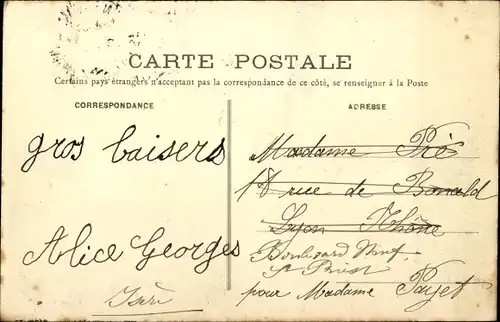 CARTE POSTALE
Certains pays étrangers n'acceptant pas la correspondance de ce côté, se renseigner à la Poste
CORRESPONDANCE
gros baisers
Alice Georges
Isère
ADRESSE
Madame
18 rue de Bonald
Lyon Rhône
Boulevard Neuf
St Priest
pour Madame Payet